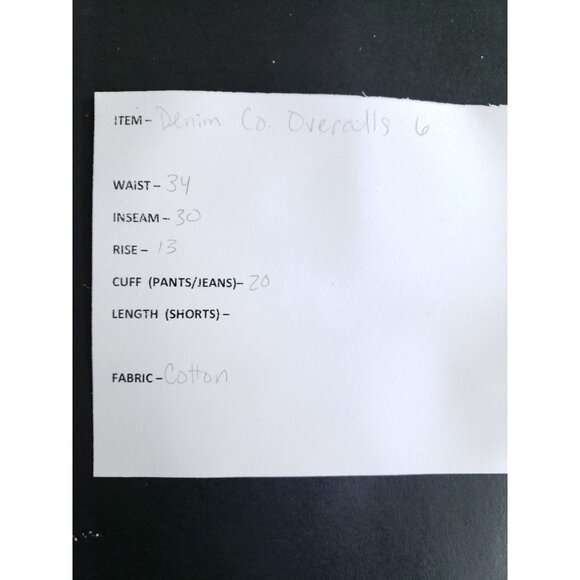 ITEM – Denim Co. Overalls 6
WAIST – 34
INSEAM – 30
RISE – 13
CUFF (PANTS/JEANS)– 20
LENGTH (SHORTS) –
FABRIC – Cotton